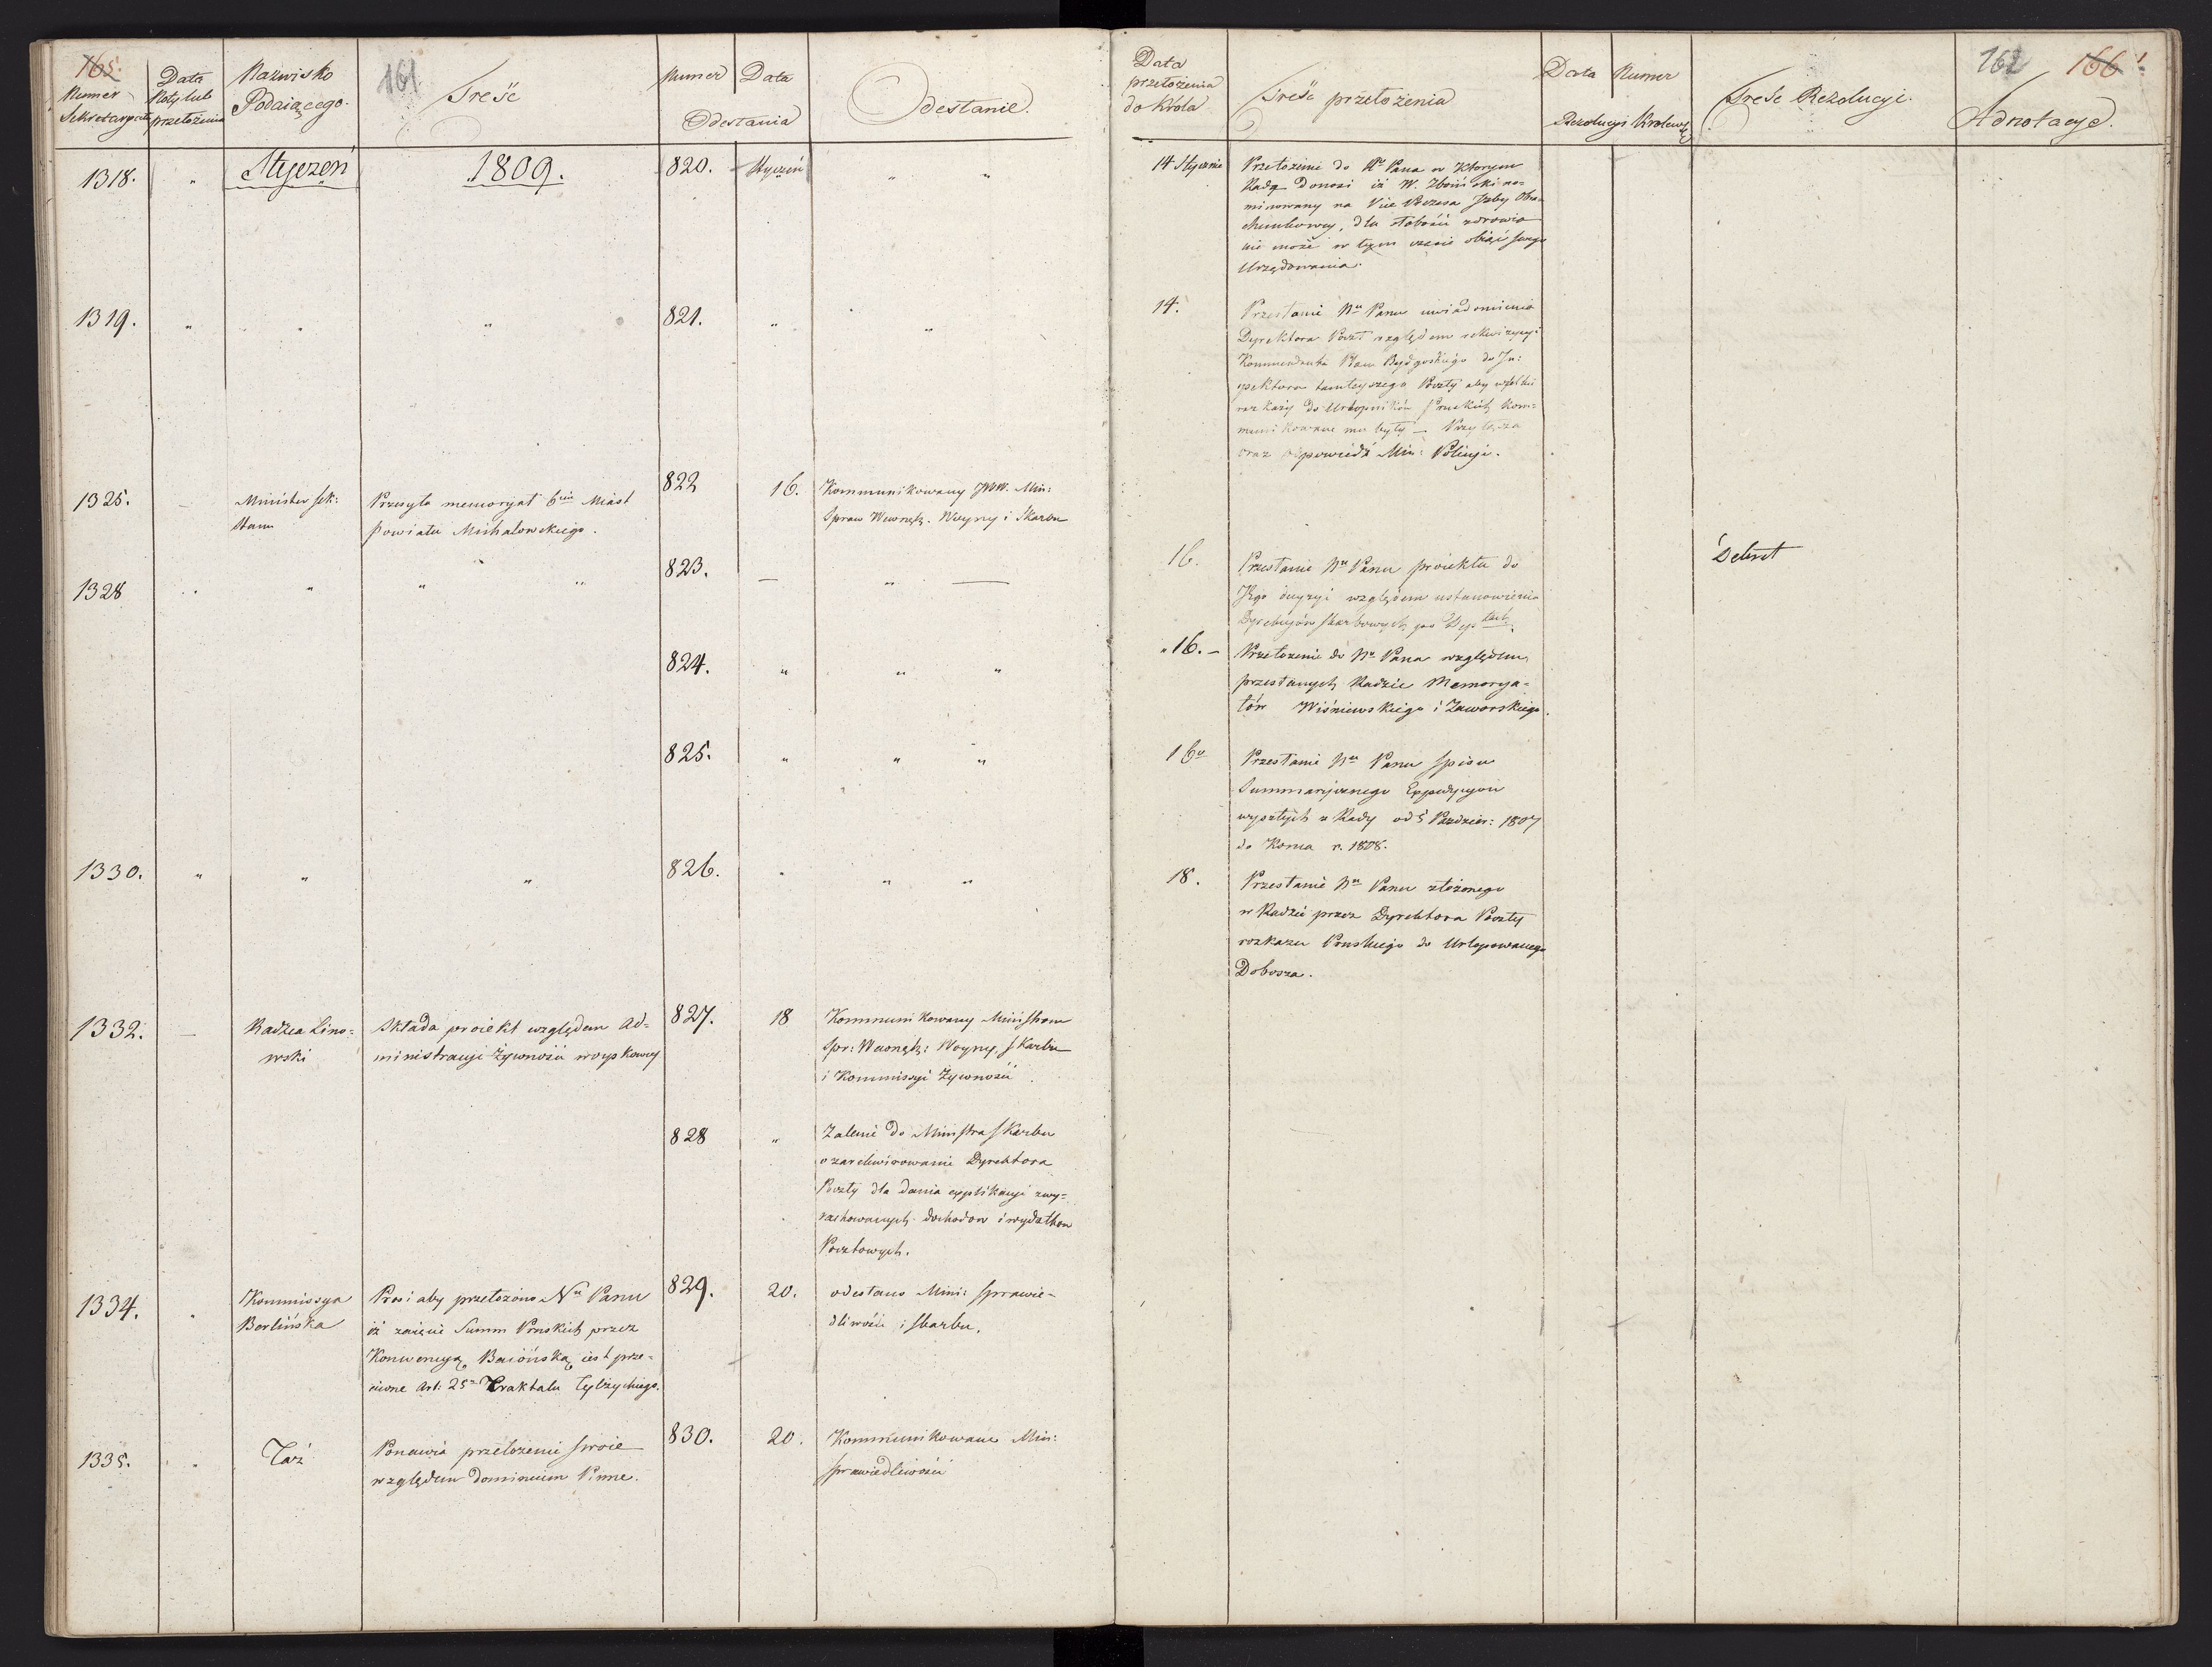 165 161
Numer Sekretaryatu
Data Noty lub przełożenia
Nazwisko Podaiącego.
Treść
Numer Data Odesłania
Odesłanie.
1318. " Styczeń 1809. 820. Styczeń " "
1319. " " " 821. " "
1325. — Minister Sek: Stanu
Przesyła memoryał 6ciu Miast
Powiatu Michałowskiego.
822 16. Kommunikowany JWW. Min:
Spraw Wewnętz. Woyny i Skarbu
1328 " " " 823. — " —
824. " " "
825. " " "
1330. " " " 826. " " "
1332. — Radzca Lino=
wski
Składa proiekt względem Ad=
ministracyi żywności woyskowey
827. 18 Kommunikowany Ministrom
Spr: Wewnętz: Woyny, Skarbu
i Kommissyi Żywności.
828 " Zalenie do Ministra Skarbu
o zarekwirowanie Dyrektora
Poczty dla dania explikacyi zwy=
rachowanych dochodow i wydatkow
Pocztowych.
1334. " Kommissya
Berlińska
Prosi aby przełożono Nu Panu
iż zaięcie Summ Pruskich przez
Konwencyą Baiońską iest prze=
ciwne Art: 25o Traktatu Tylżyckiego.
829. 20. odesłano Mini: Sprawie=
dliwości i Skarbu.
1335. " Taż
Ponawia przełożenie swoie
względem dominium Pinne.
830. 20. Kommunikowane Min:
Sprawiedliwości
162 166
Data przełożenia do Króla
Treść przełożenia
Data Numer
Rezolucyi Królewskiey
Treść Rezolucyi.
Adnotacye.
14 Stycznia Przełożenie do Nu Pana w którym
Rada donosi iż W. Zboiński no=
minowany na Vice Prezesa Izby Obra=
chunkowey, dla słabości zdrowia
nie może w tym czasie obiąć swego
Urzędowania.
14. Przesłanie Nu Panu uwiadomienia
Dyrektora Poczt względem rekwizycyi
Kommendanta Placu Bydgoskiego do In:
spektora tamteyszego Poczty aby wszelkie
rozkazy do Urlopników Pruskich kom=
munikowane mu były — Przyłącza
oraz odpowiedź Min: Policyi.
16. Przesłanie Nu Panu proiektu do
Jego decyzyi względem ustanowienia
Dyrekcyiów Skarbowych po Deptach.
Dekret
" 16. — Przełożenie do Nu Pana względem
przesłanych Radzie Memorya=
łów Wiśniewskiego i Zaworskiego.
16o Przesłanie Nu Panu spisu
Summarycznego Expedycyów
wyszłych z Rady od 5 Paździer: 1807
do Końca r. 1808.
18. Przesłanie Nu Panu złożonego
w Radzie przez Dyrektora Poczty
rozkazu Pruskiego do Urlopowanego
Dobosza.